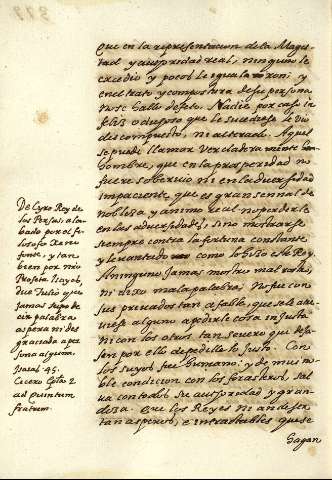 que en la representacion de la Magis
tad y autoridad real, ninguno le
excedio y pocos le igualaron; y
en el trato y compostura de su persona
no se hallo defeto. Nadie por caso in
feliz o adverso que le sucediese le vio
descompuesto, ni alterado. Aquel
se puede llamar verdadera mente
hombre, que en la prosperidad no
fuere soberuio ni en la aduersidad
impaciente que es gran señal de
nobleza y animo real no perderle
en las aduersidades; sino mostrarse
siempre contra la fortuna constante
y leuantado como lo hizo este Rey.
A ninguno Jamas mostro mal rostro,
ni dixo mala palabra; no fue con
sus priuados tan afable, que se le atre
uiese alguno a pedirle cosa injusta
ni con los otros tan seuero que dexa
sen por ello de pedille lo Justo. Con
los suyos fue humano; y de mui no
ble condicion con los forasteros, sal
ua con todos su autoridad y gran
deza. Que los Reyes ni an de ser
tan asperos, e intratables que se
hagan
De Cyro Rey de
los Persas, ala
bado por el fi
losofo Xeno
fonte, y tam
bien por mio
Profeta Isayas,
dize Tulio que
jamas supo de
cir palabra
aspera ni des
graciada a per
sona alguna.
Isaias 45.
Cicero Epta. 2
ad quintum
fratrem.